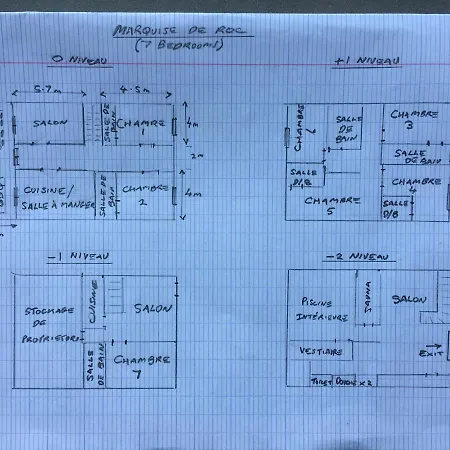 MARQUISE DE ROC
(7 BEDROOMS)
0 NIVEAU
5.7m
4.5m
SALON
SALLE DE
BAIN
CHAMRE
1
4m
2m
CUISINE/
SALLE À MANGER
SALLE DE
BAIN
CHAMBRE
2
4m
+1 NIVEAU
CHAMBRE
6
SALLE
DE
BAIN
CHAMBRE
3
SALLE DE BAIN
SALLE
D/B
CHAMBRE
5
CHAMBRE
4
SALLE
D/B
-1 NIVEAU
STOCKAGE
DE
PROPRIETERS
CUISINE
SALON
SALLE
DE BAIN
CHAMBRE
7
-2 NIVEAU
PISCINE
INTÉRIEURE
SAUNA
SALON
VESTIAIRE
EXIT
TOILET
DOUCHE x 2